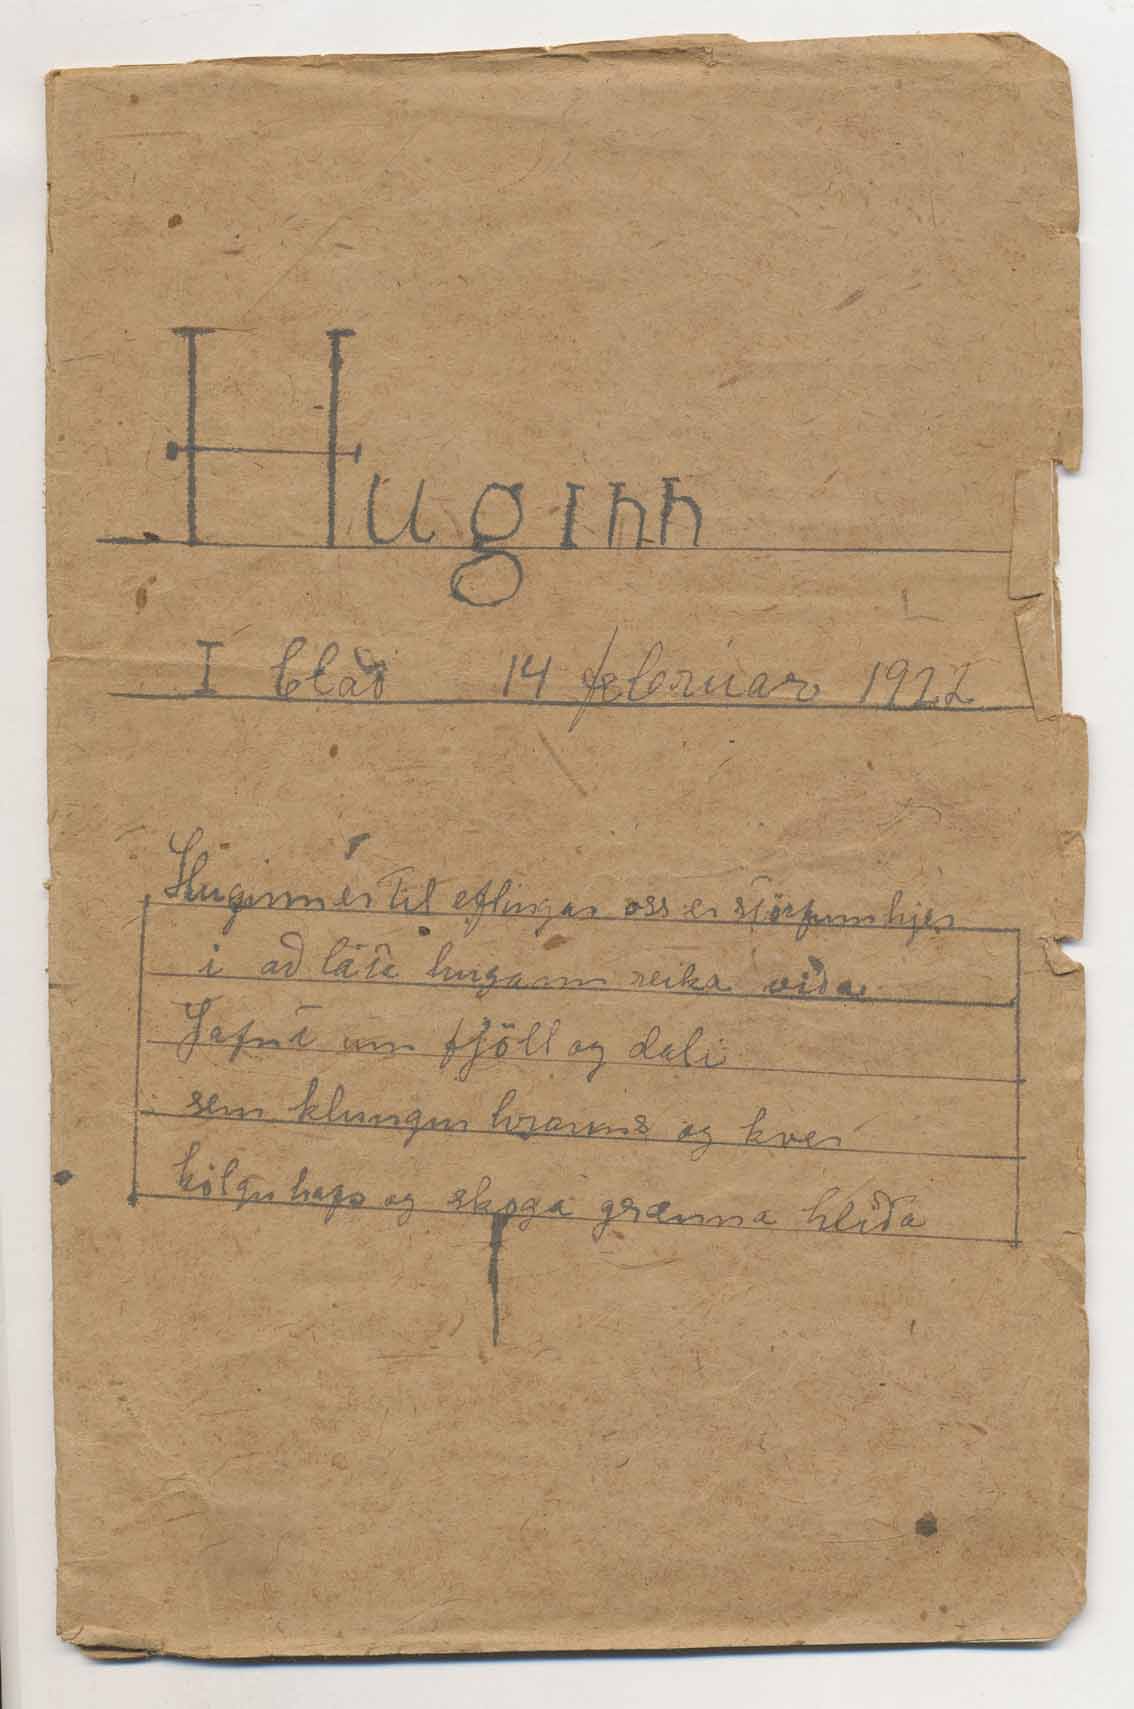 Huginn
I blað 14 februar 1922
Huginn er til eflingar oss er störfum hjer
i að láta hugann reika viða
Jafnt um fjöll og dali
sem klungur hrauns og hver
kólgu haf og skoga grænna hliða